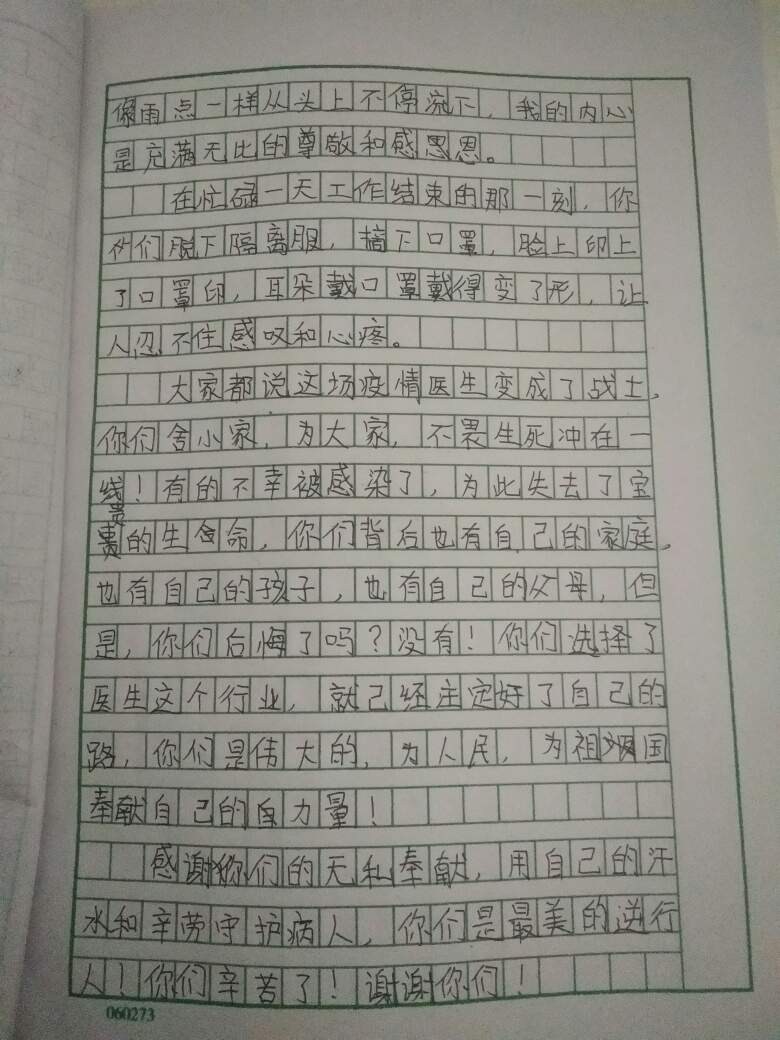 像雨点一样从头上不停流下，我的内心
是充满无比的尊敬和感恩。
在忙碌一天工作结束的那一刻，你
们脱下隔离服，摘下口罩，脸上印上
了口罩印，耳朵戴口罩戴得变了形，让
人忍不住感叹和心疼。
大家都说这场疫情医生变成了战士，
你们舍小家，为大家，不畏生死冲在一
线！有的不幸被感染了，为此失去了宝
贵的生命，你们背后也有自己的家庭，
也有自己的孩子，也有自己的父母，但
是，你们后悔了吗？没有！你们选择了
医生这个行业，就已经主定好了自己的
路，你们是伟大的，为人民，为祖国
奉献自己的力量！
感谢你们的无私奉献，用自己的汗
水和辛劳守护病人，你们是最美的逆行
人！你们辛苦了！谢谢你们！
060273